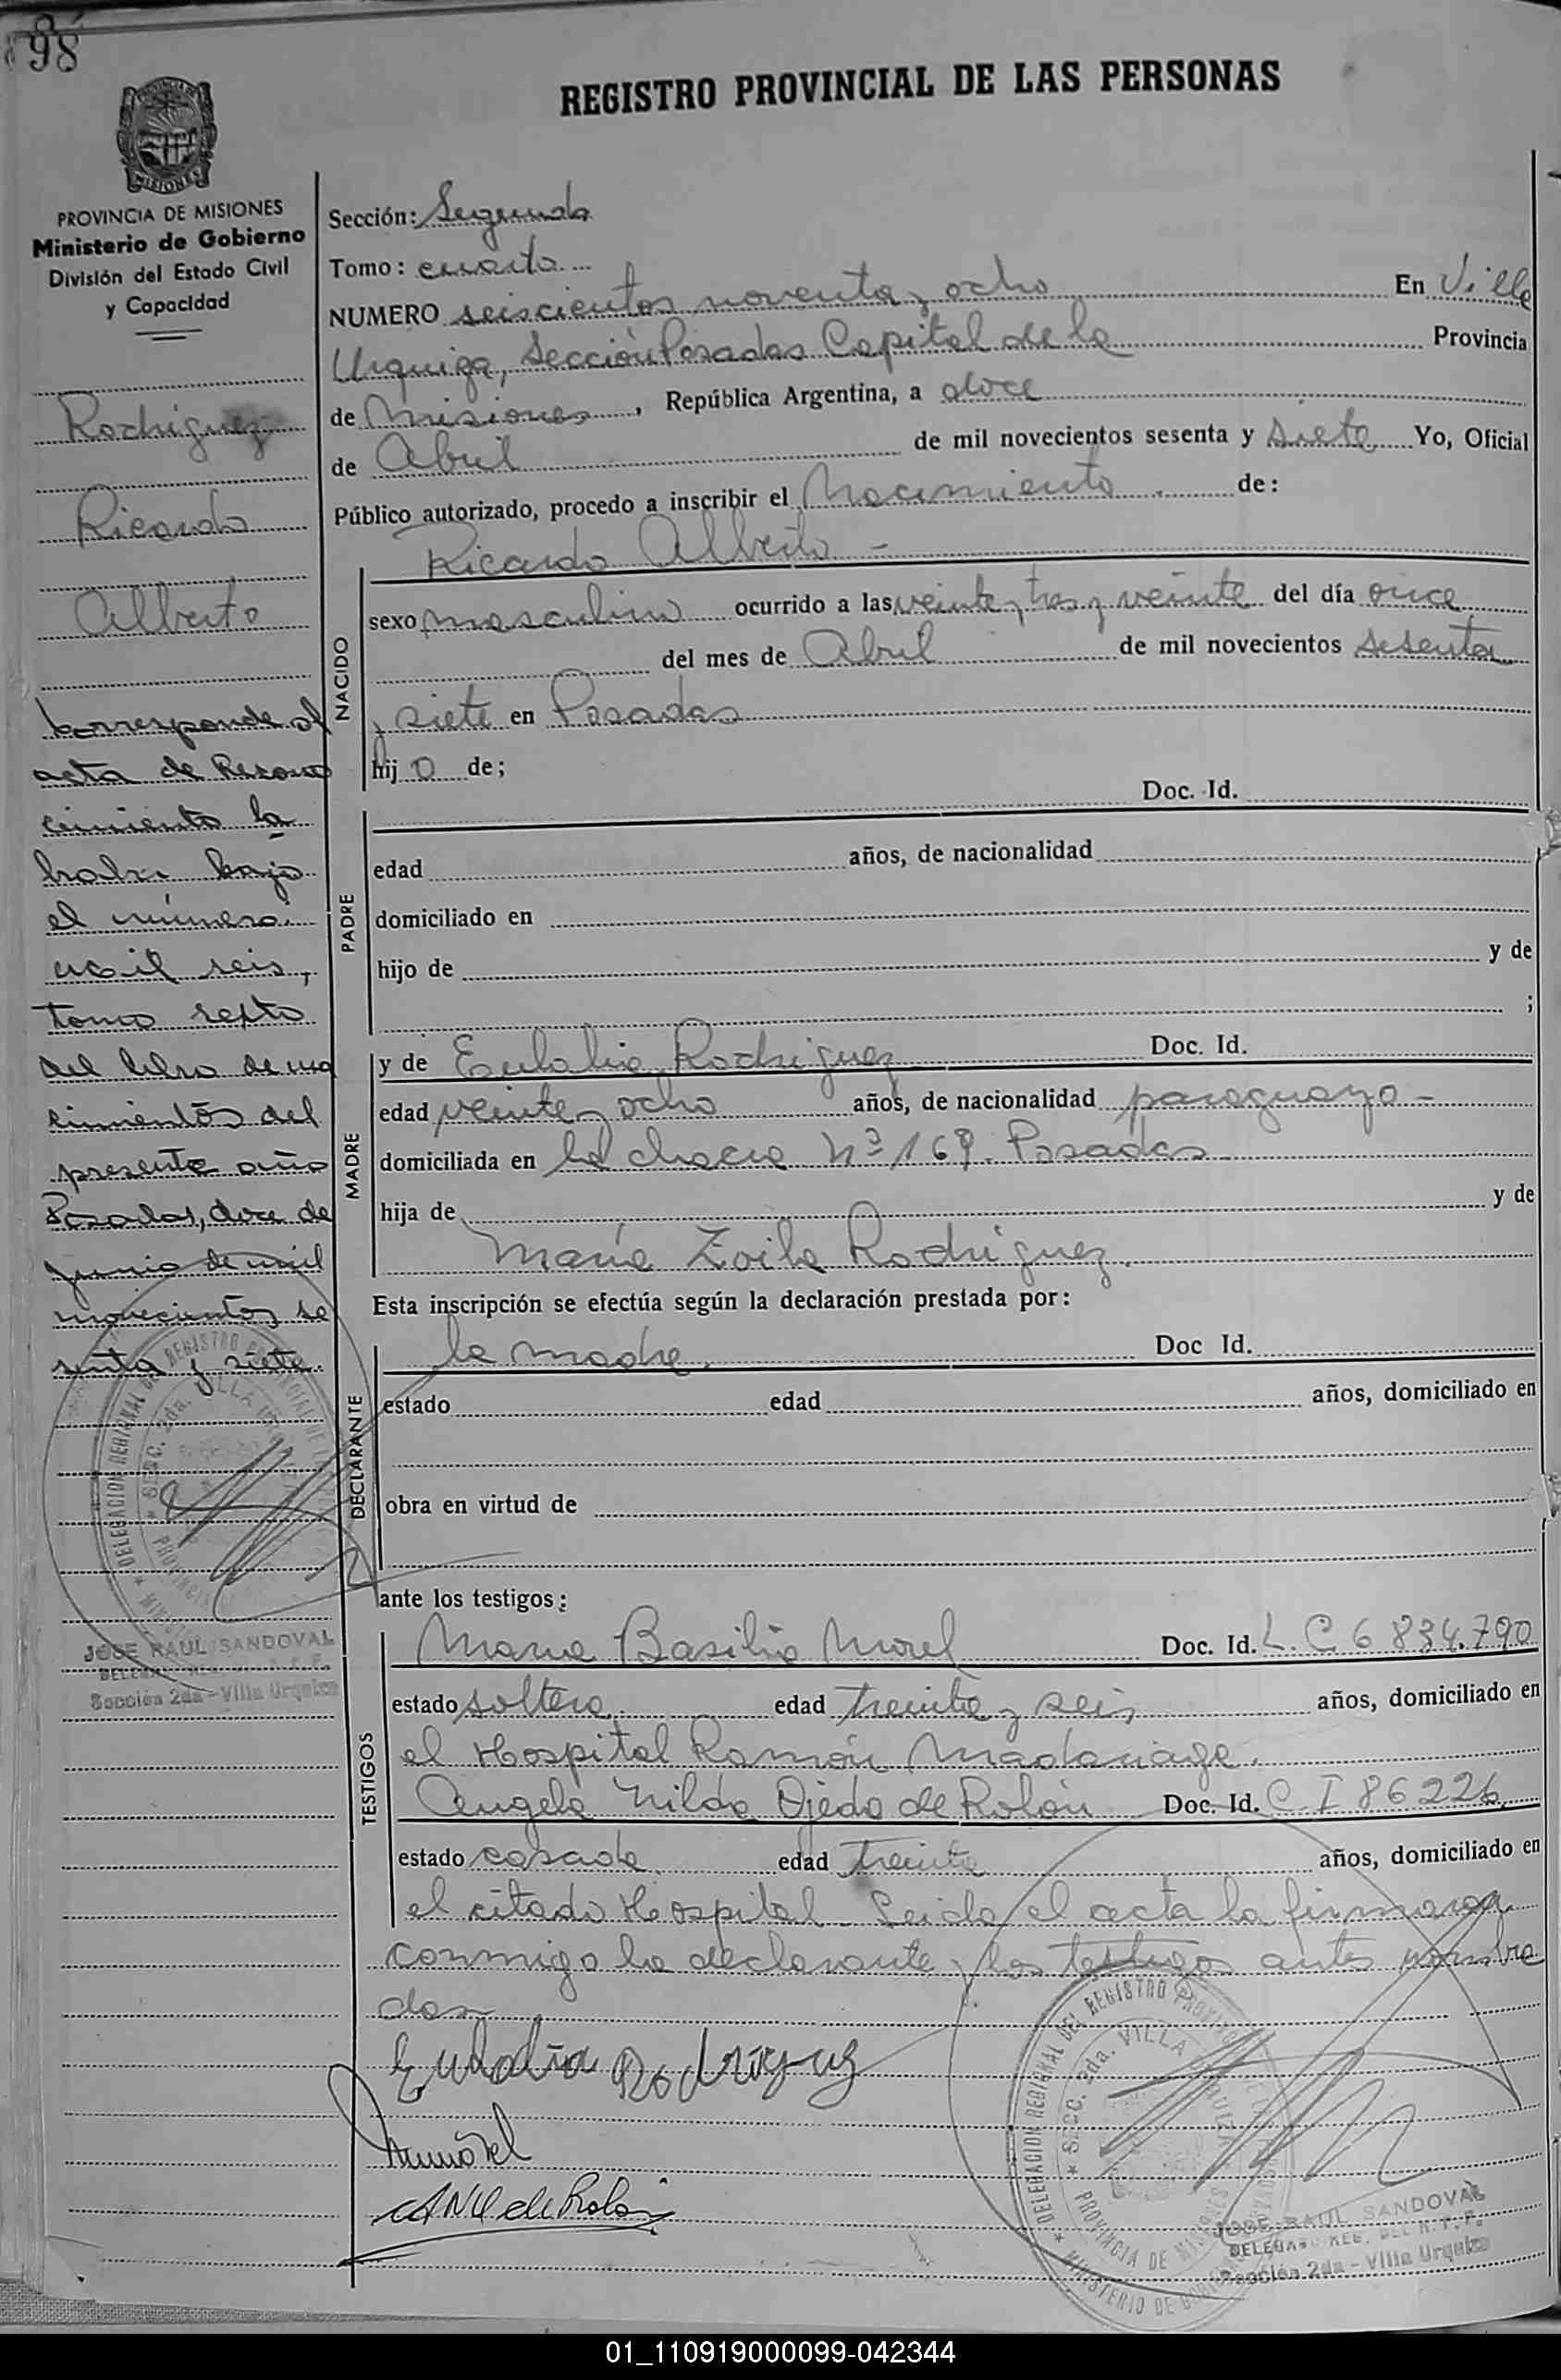 98
REGISTRO PROVINCIAL DE LAS PERSONAS
MISIONES
PROVINCIA DE MISIONES
Ministerio de Gobierno
División del Estado Civil
y Capacidad
Rodriguez
Ricardo
Alberto
Corresponde al
acta de Recono
cimiento la
habra bajo
el número
mil seis,
tomo sexto
del libro de na
cimientos del
presente año
Posadas, doce de
junio de mil
novecientos se
senta y siete.
JOSE RAUL SANDOVAL
Sección 2da - Villa Urquiza
Sección: Segunda
Tomo: cuarto
NUMERO seiscientos noventa y ocho En Villa
Urquiza, Sección Posadas Capital de la Provincia
de Misiones, República Argentina, a doce
de Abril de mil novecientos sesenta y siete Yo, Oficial
Público autorizado, procedo a inscribir el Nacimiento de:
Ricardo Alberto -
NACIDO
sexo masculino ocurrido a las veinte y tres y veinte del día once
del mes de Abril de mil novecientos sesenta
y siete en Posadas
hijo de;
PADRE
Doc. Id.
edad años, de nacionalidad
domiciliado en
hijo de y de
;
MADRE
y de Eulalia Rodriguez Doc. Id.
edad veinte y ocho años, de nacionalidad paraguaya -
domiciliada en la chacra Nº 169. Posadas
hija de y de
María Zoila Rodríguez.
Esta inscripción se efectúa según la declaración prestada por:
DECLARANTE
la madre. Doc Id.
estado edad años, domiciliado en
obra en virtud de
ante los testigos:
TESTIGOS
Maria Basilia Morel Doc. Id. L. C 6 834.790
estado soltera edad treinta y seis años, domiciliado en
el Hospital Ramón Madariaga.
Angela Nilda Ojeda de Rolón Doc. Id. C I 86226
estado casada edad treinta años, domiciliado en
el citado Hospital. Leida el acta la firmaron
conmigo la declarante y los testigos antes nombra
dos
Eulalia Rodriguez
Morel
de Rolon
DELEGACION REGIONAL DEL REGISTRO
SECC. 2da. VILLA
PROVINCIA DE MISIONES
MINISTERIO DE
JOSE RAUL SANDOVAL
DELEGADO REG. DEL R. P. P.
Sección 2da - Villa Urquiza
01_110919000099-042344